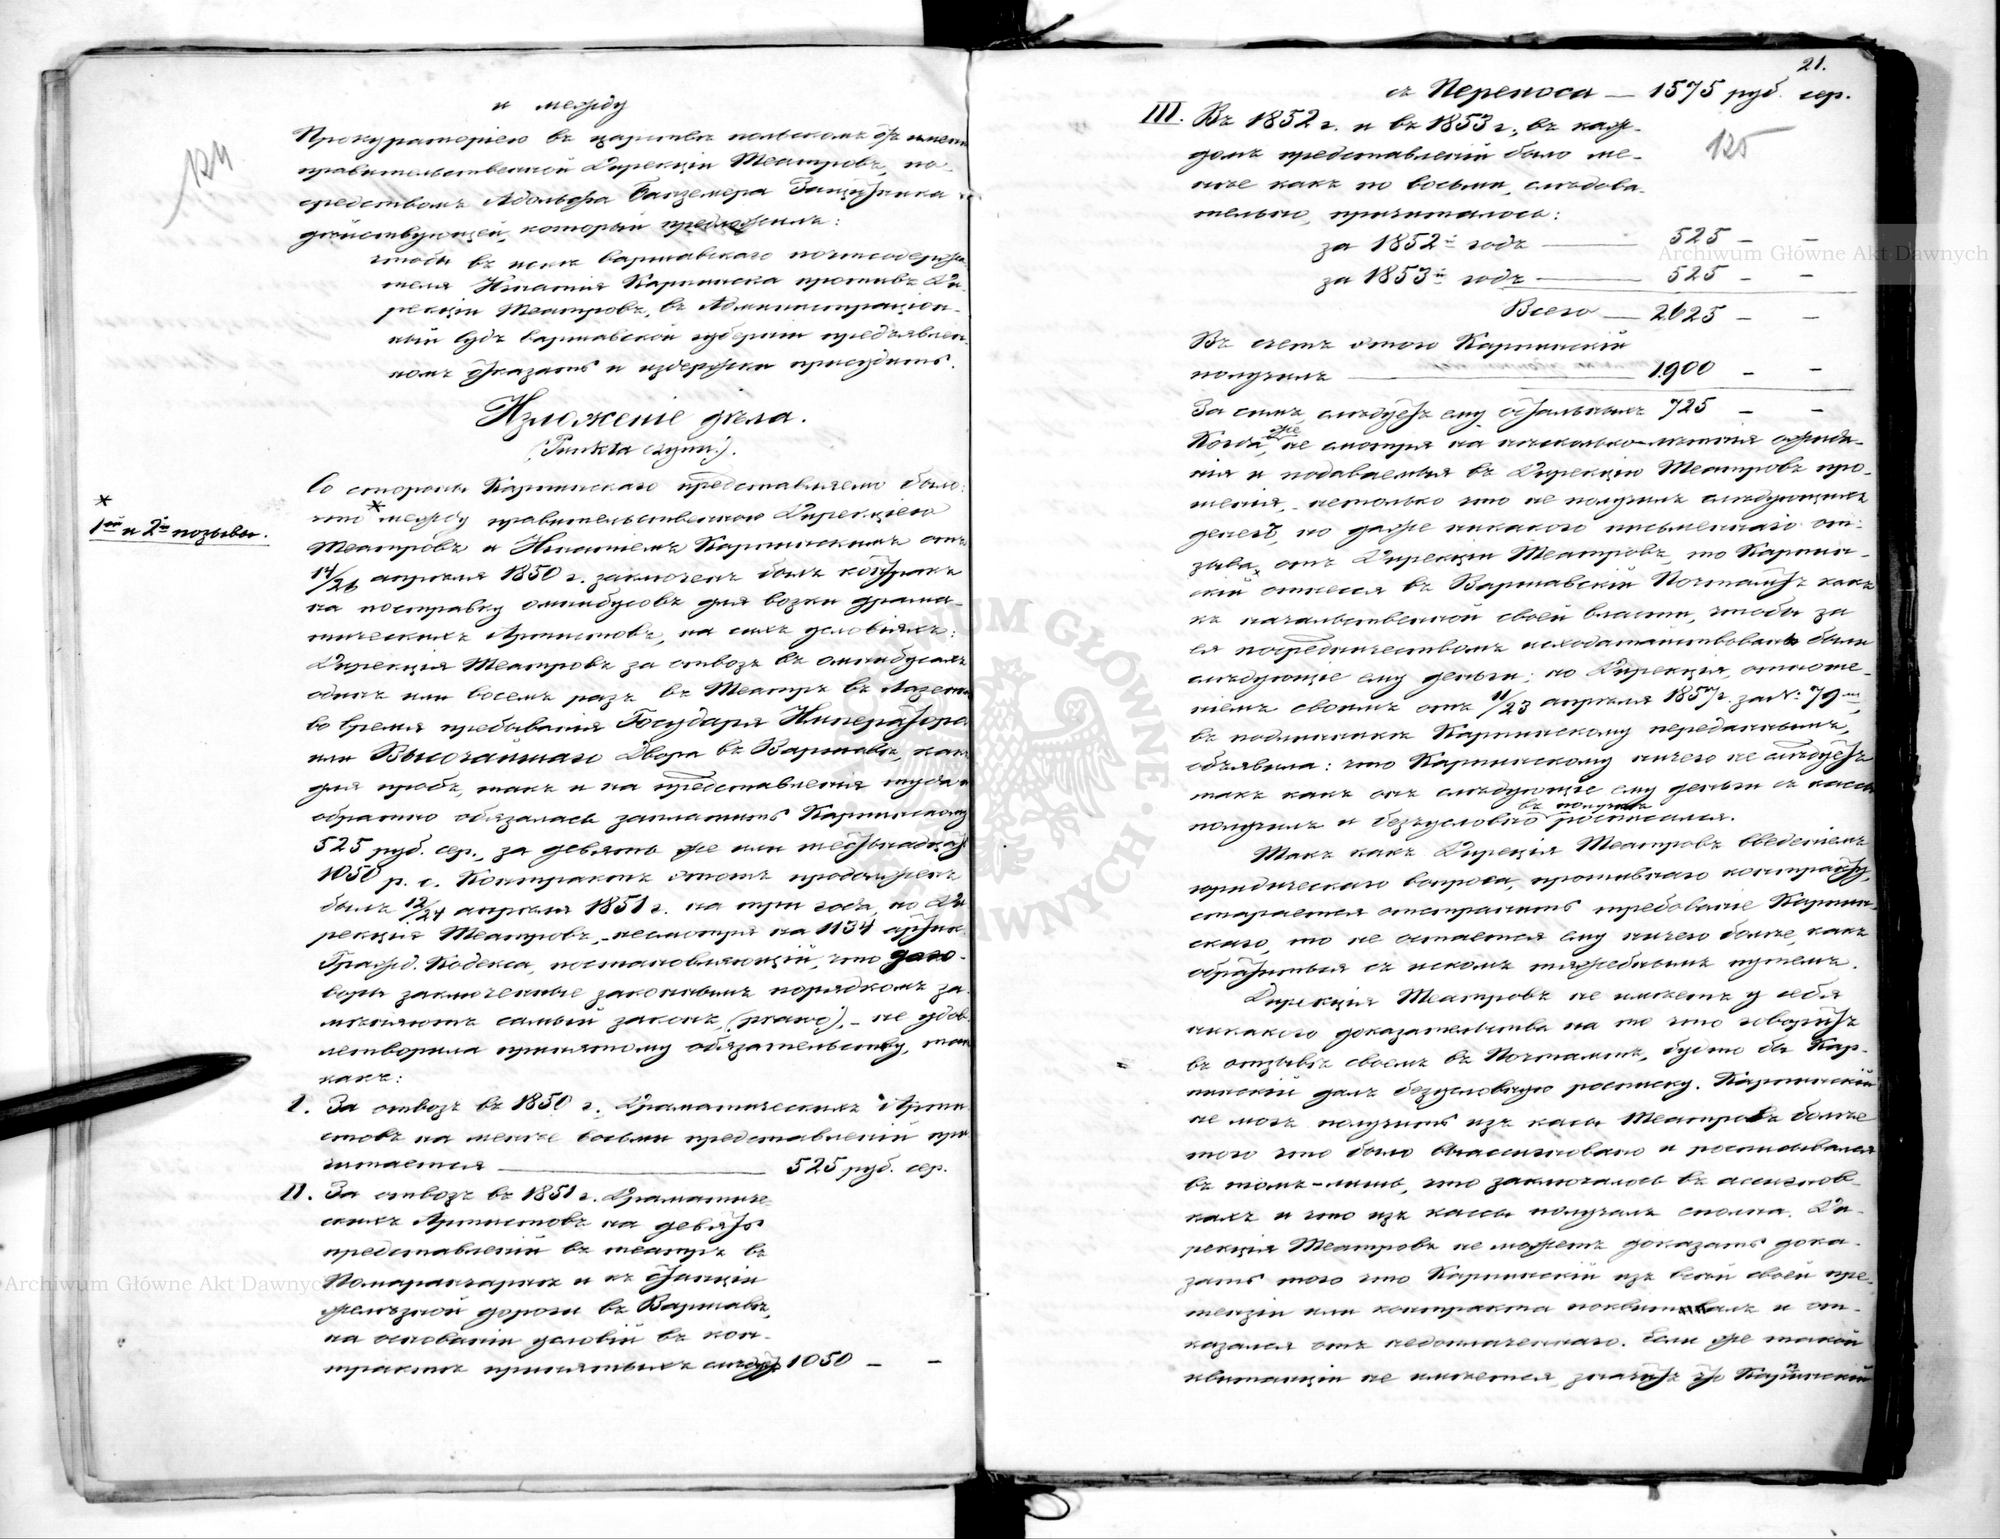 124
и между
Прокураторіею въ царствѣ польскомъ отъ имени
правительственной Дирекціи Театровъ, по-
средствомъ Адольфа Защитника
дѣйствующей, который предложилъ:
чтобы въ искѣ варшавскаго почтосодержа-
теля Игнатія Карпинска противъ Ди-
рекціи Театровъ, въ Администраціон-
ный Судъ варшавской губерніи предъявлен-
номъ отказать и издержки присудить.
Изложеніе дѣла.
Со стороны Карпинскаго представлено было:
* 1ый и 2й позывы.
что * между правительственною Дирекціею
Театровъ и Игнатіемъ Карпинскимъ отъ
14/26 апрѣля 1850 г. заключенъ былъ контрактъ
на поставку омнибусовъ для возки драма-
тическихъ Артистовъ, на сихъ условіяхъ:
Дирекція Театровъ за отвозъ въ омнибусахъ
одинъ или восемь разъ въ Театръ въ Лазенки
во время пребыванія Государя Императора
или Высочайшаго Двора въ Варшавѣ, какъ
для пробъ, такъ и на представленія туда и
обратно обязалась заплатить Карпинскому
525 руб. сер., за девять же или шестьнадцать
1050 р. с. Контрактъ этотъ продолженъ
былъ 12/24 апрѣля 1851 г. на три года, но Ди-
рекція Театровъ, несмотря на 1134 артик.
Гражд. Кодекса, постановляющій, что дого-
воры заключенные законнымъ порядкомъ за-
мѣняютъ самый законъ (prawo), - не удов-
летворила принятому обязательству, такъ
какъ:
I. За отвозъ въ 1850 г. Драматическихъ Арти-
стовъ на менѣе восьми представленій при-
читается — 525 руб. сер.
II. За отвозъ въ 1851 г. Драматиче-
скихъ Артистовъ на девять
представленій въ театръ въ
Помаранчарнѣ и къ станціи
желѣзной дороги въ Варшавѣ,
на основаніи условій въ кон-
трактѣ принятыхъ слѣдуетъ 1050 – –
21.
125
съ Переноса — 1575 руб. сер.
III. Въ 1852 г. и въ 1853 г., въ каж-
домъ представленій было ме-
нѣе какъ по восьми, слѣдова-
тельно, причиталось:
за 1852й годъ — 525 – –
за 1853й годъ — 525 – –
Всего — 2625 – –
Въ счетъ этого Карпинскій
получилъ — 1900 – –
За симъ, слѣдуетъ ему остальныхъ 725 – –
Когда же, не смотря на нѣсколько-лѣтнія ожида-
нія и подаваемыя въ Дирекцію Театровъ про-
шенія, нетолько что не получилъ слѣдующихъ
денегъ, но даже никакого письменнаго от-
зыва отъ Дирекціи Театровъ, то Карпин-
скій отнесся въ Варшавскій Почтамтъ какъ
къ начальственной своей власти, чтобы за
ея посредничествомъ исходатайствованы были
слѣдующіе ему деньги; но Дирекція, отноше-
ніемъ своимъ отъ 11/23 апрѣля 1857 г. за № 79
въ подлинникѣ Карпинскому переданнымъ,
объявила: что Карпинскому ничего не слѣдуетъ
такъ какъ онъ слѣдующіе ему деньги съ кассы
получилъ и безусловно въ полученіи росписался.
Такъ какъ Дирекція Театровъ введеніемъ
юридическаго вопроса, противнаго контракту,
старается отстранить требованіе Карпин-
скаго, то не остается ему ничего болѣе, какъ
обратиться съ искомъ тяжебнымъ путемъ.
Дирекція Театровъ не имѣетъ у себя
никакого доказательства на то что говоритъ
въ отзывѣ своемъ въ Почтамтъ, будто бы Кар-
пинскій далъ безусловную росписку. Карпинскій
не могъ получить изъ кассы Театровъ болѣе
того что было ассигновано и росписывался
въ томъ-лишь, что заключалось въ ассигнов-
кахъ и что изъ кассы получалъ сполна. Ди-
рекція Театровъ не можетъ доказать дока-
зать того что Карпинскій изъ всей своей пре-
тензіи или контракта поквитовалъ и от-
казался отъ недоплаченнаго. Если же такой
квитанціи не имѣется, значитъ что Карпинскій